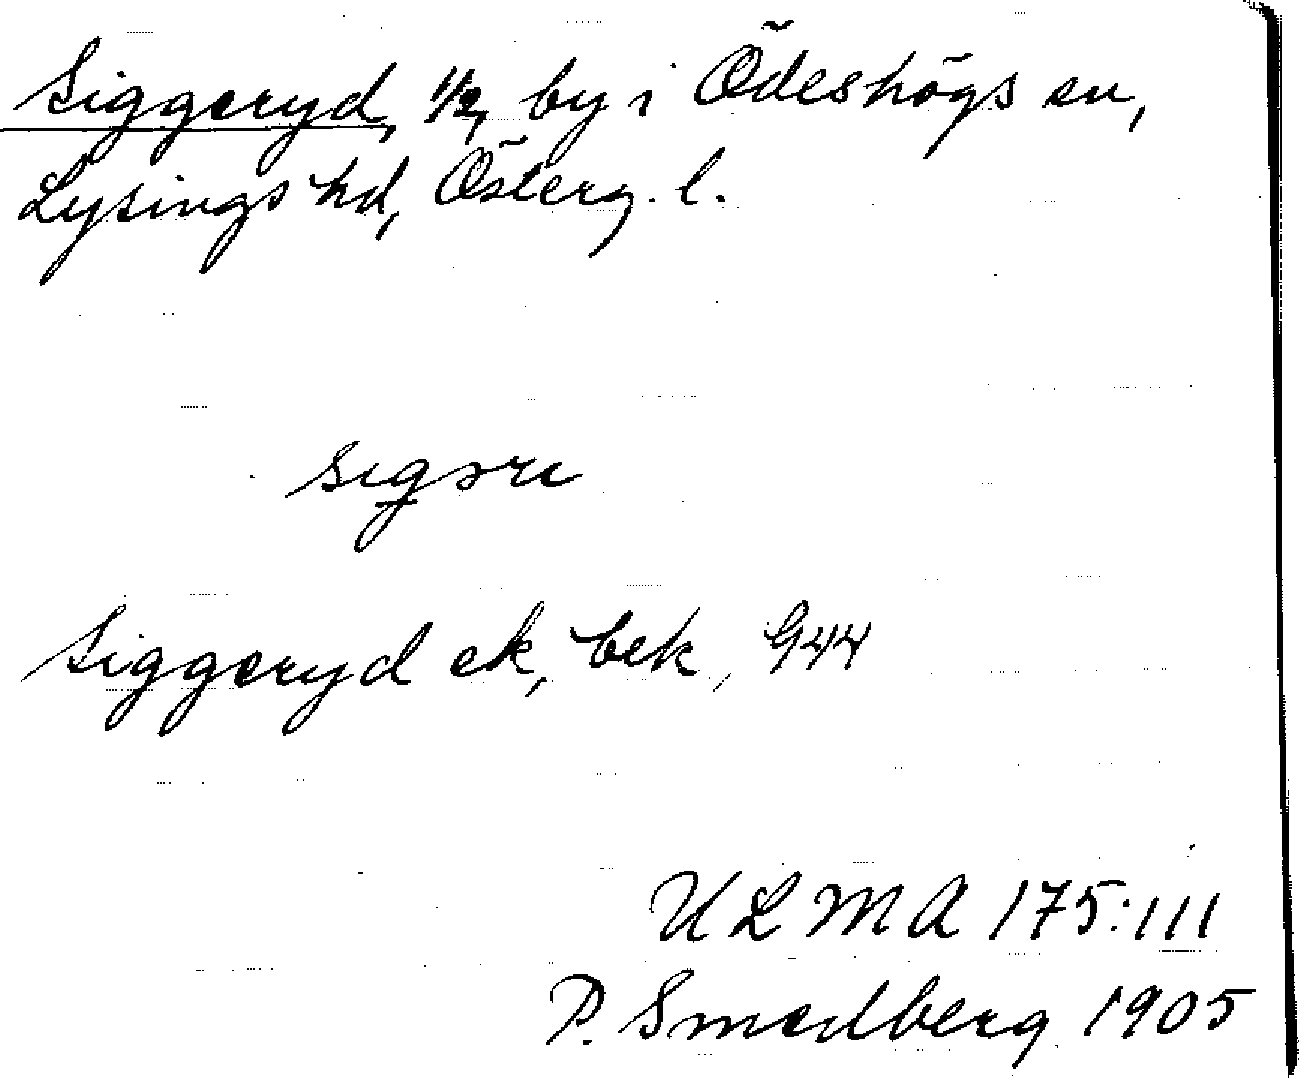 Siggeryd, 1/2, by i Ödeshögs sn,
Lysings hd, Österg. l.
sıgəre
Siggeryd ek, bek, G44
ULMA 175:111
P. Smedberg 1905